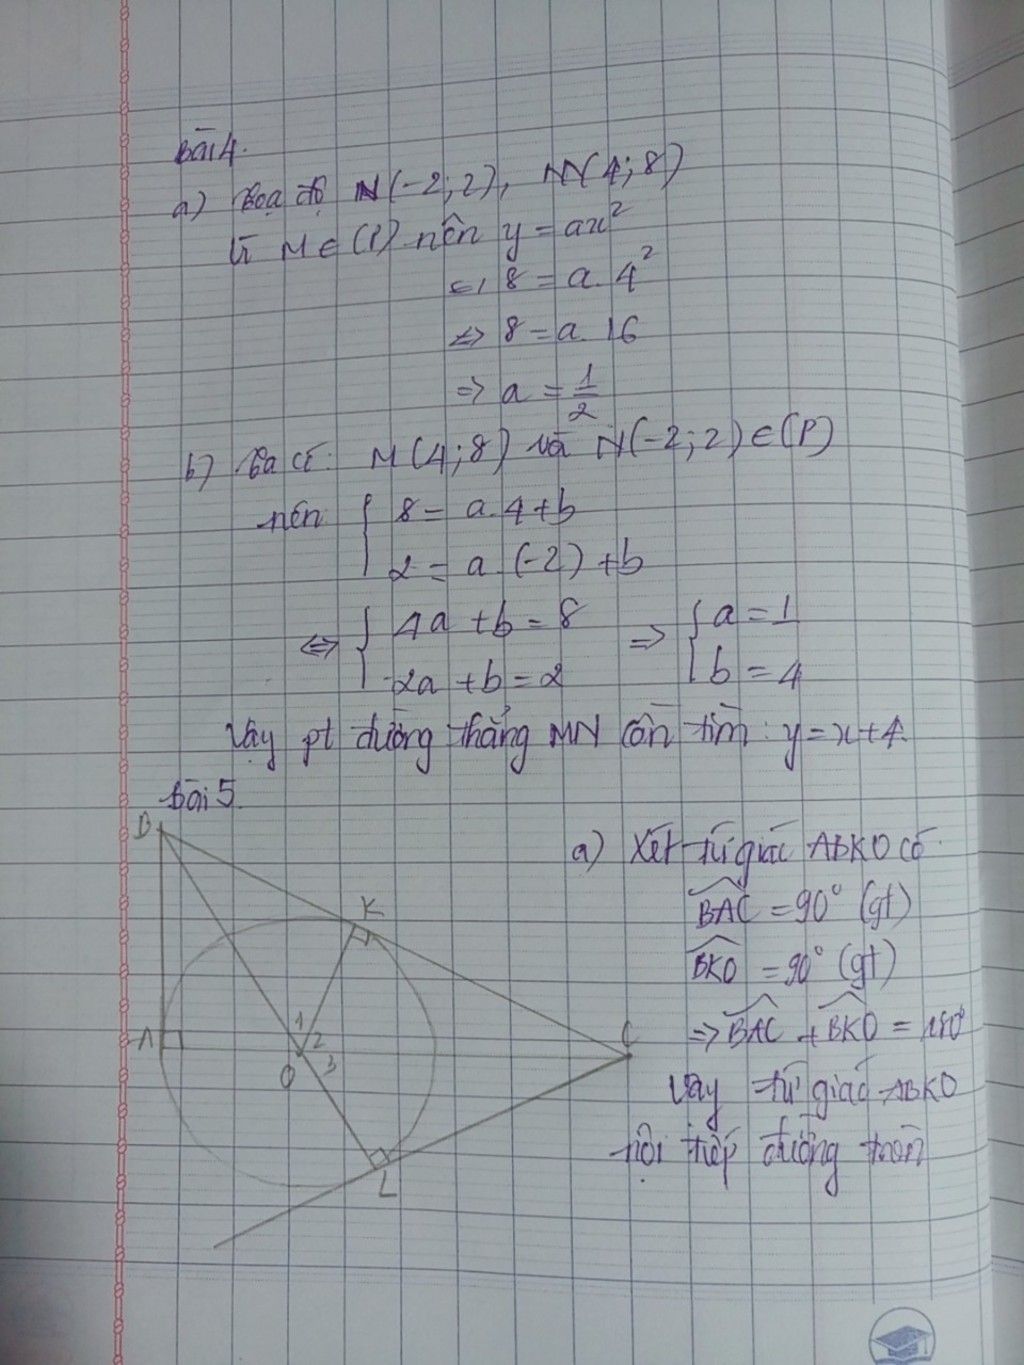 Bài 4.
a) Toạ độ N(-2;2), M(4;8)
Vì M ∈ (P) nên y = ax²
<=> 8 = a.4²
<=> 8 = a.16
=> a = 1/2
b) Ta có: M(4;8) và N(-2;2) ∈ (P)
nên { 8 = a.4+b
2 = a.(-2)+b
<=> { 4a+b=8 => { a=1
-2a+b=2 b=4
Vậy pt đường thẳng MN cần tìm: y=x+4.
Bài 5.
a) Xét tứ giác ABKO có
BAC = 90° (gt)
BKO = 90° (gt)
=> BAC + BKO = 180°
Vậy tứ giác ABKO
nội tiếp đường tròn
B
K
A
1
2
3
O
C
L